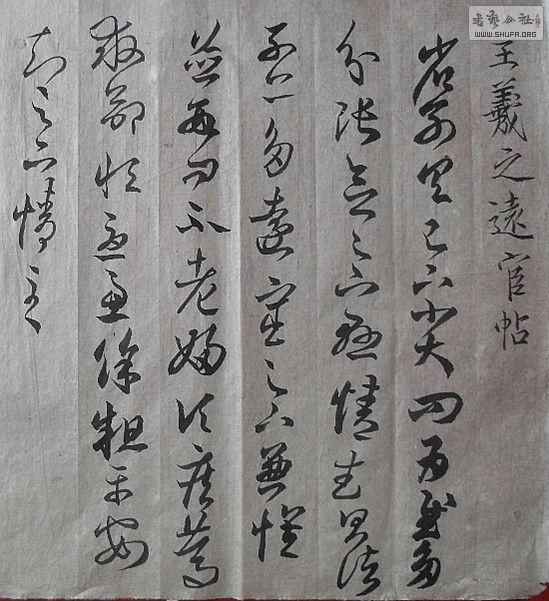 書藝公社
WWW.SHUFA.ORG
王羲之遠官帖
省別具足下小大問為慰多
分張念足下懸情武昌諸
子亦多遠宦足下兼懷
並數問不老婦頃疾篤
救命恒憂慮餘粗平安
知足下情至